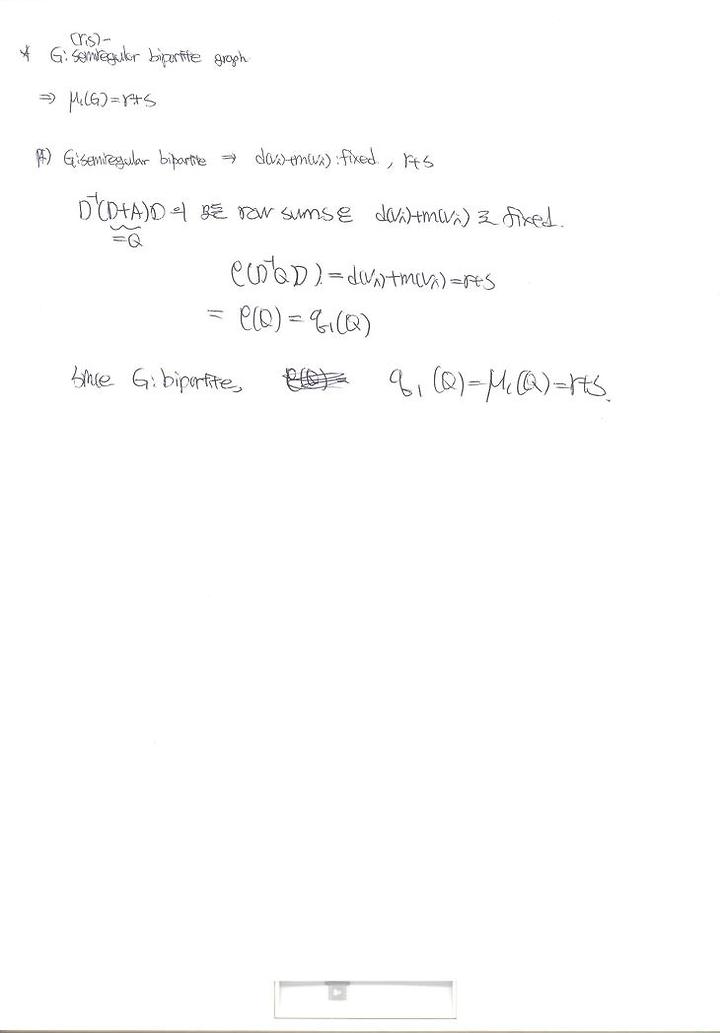 (r,s)-
* G: semiregular bipartite graph
⇒ μ₁(G)=r+s
pf) G: semiregular bipartite ⇒ d(vᵢ)+m(vᵢ) : fixed , r+s
D⁻¹(D+A)D의 모든 row sums은 d(vᵢ)+m(vᵢ)로 fixed.
=Q
ρ(D⁻¹QD) = d(vᵢ)+m(vᵢ)=r+s
= ρ(Q) = q₁(Q)
Since G: bipartite, q₁(Q)=μ₁(Q)=r+s.